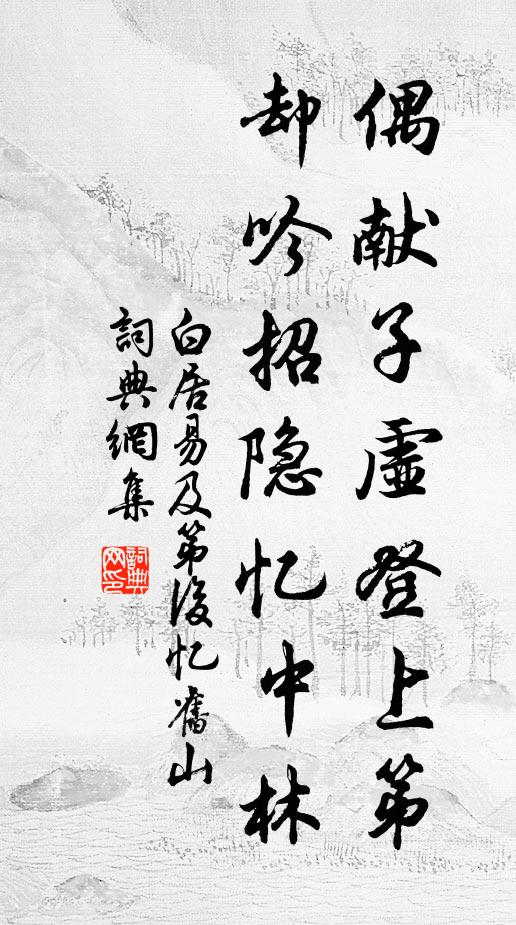 偶献子虚登上第
却吟招隐忆中林
白居易及第後忆舊山
詞典網集
詞典网印